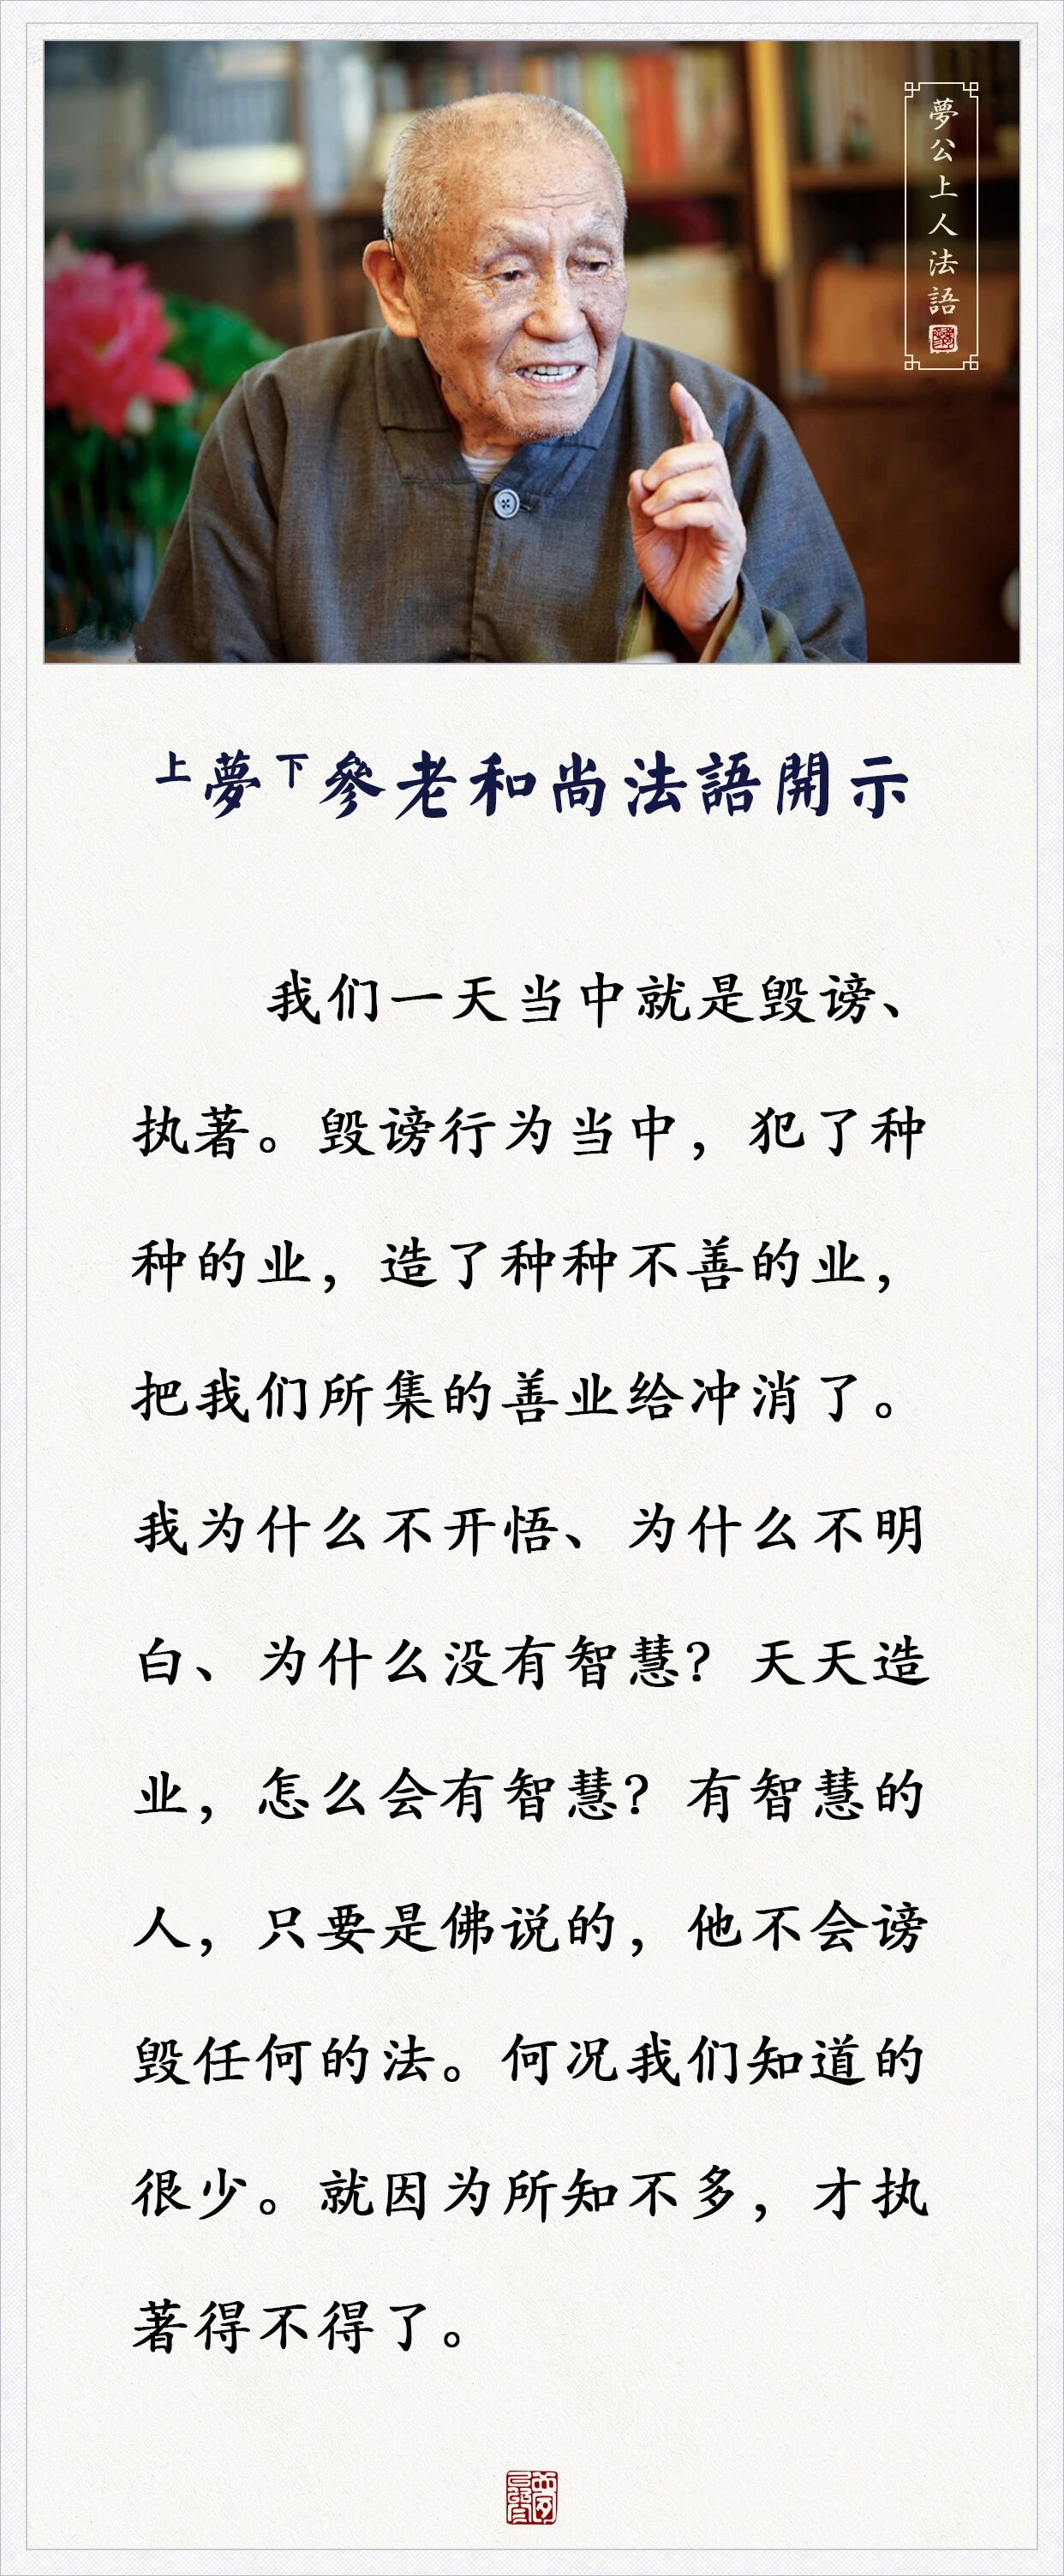 夢公上人法語
上夢下參老和尚法語開示
我们一天当中就是毁谤、
执著。毁谤行为当中，犯了种
种的业，造了种种不善的业，
把我们所集的善业给冲消了。
我为什么不开悟、为什么不明
白、为什么没有智慧？天天造
业，怎么会有智慧？有智慧的
人，只要是佛说的，他不会谤
毁任何的法。何况我们知道的
很少。就因为所知不多，才执
著得不得了。